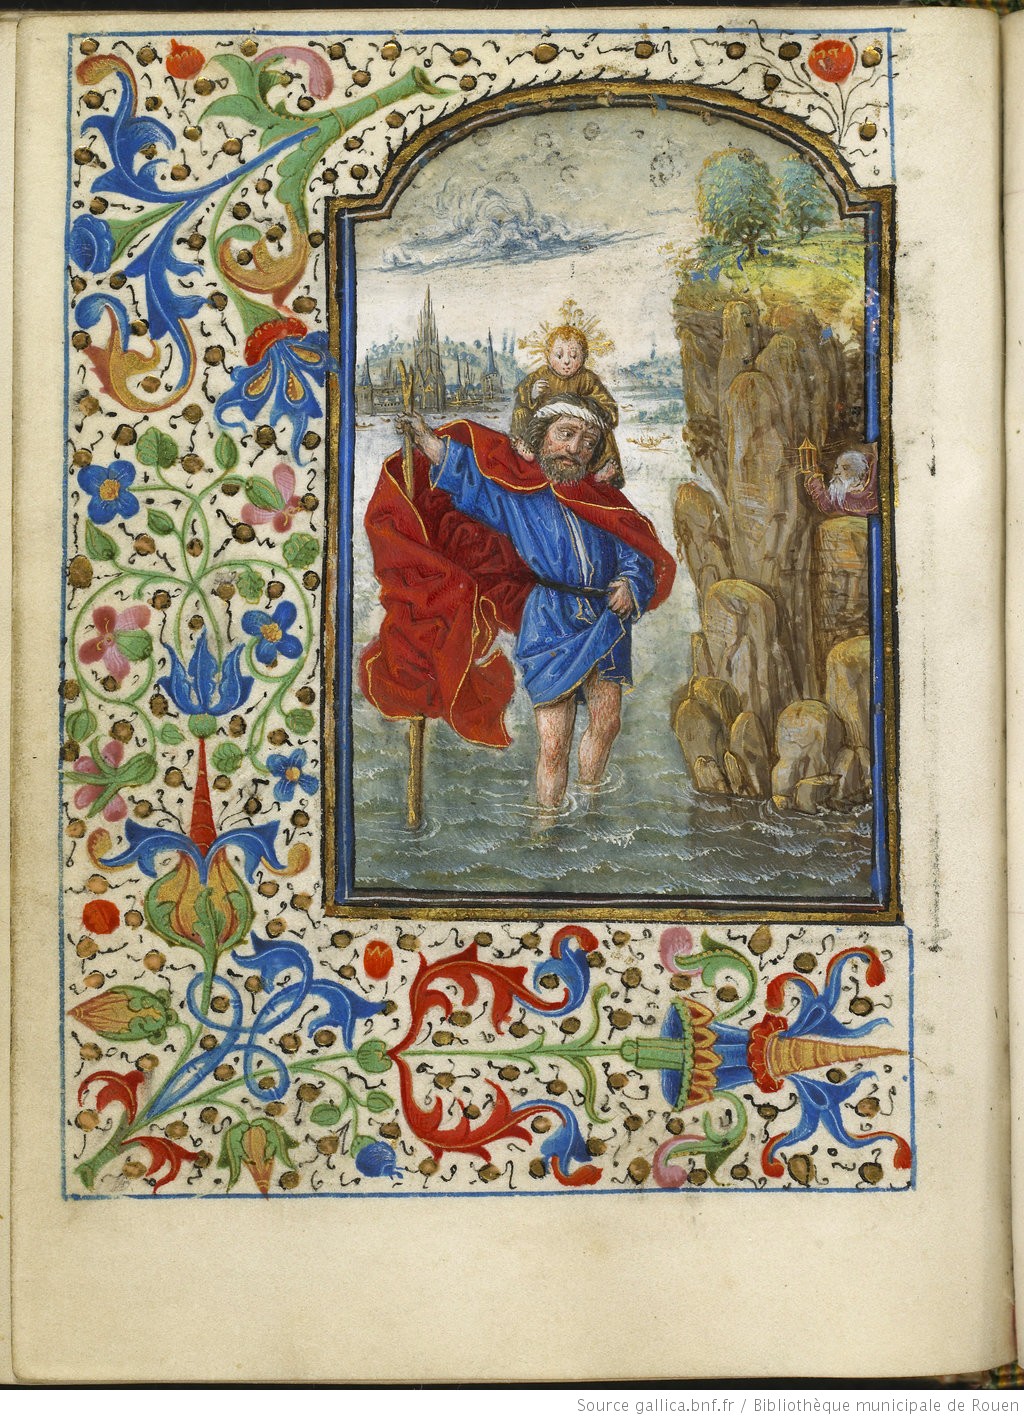 Source gallica.bnf.fr / Bibliothèque municipale de Rouen